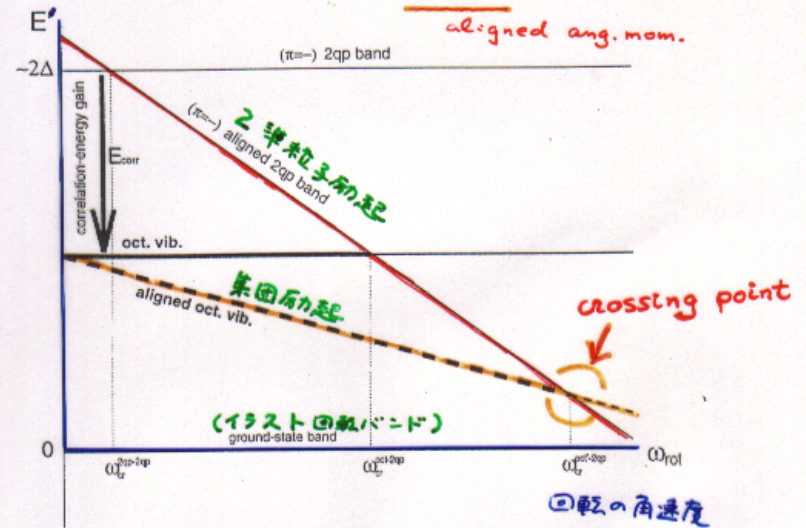 E′
aligned ang. mom.
(π=−) 2qp band
~2Δ
correlation-energy gain
E corr
2準粒子励起
(π=−) aligned 2qp band
oct. vib.
集団励起
aligned oct. vib.
crossing point
(イラスト回転バンド)
ground-state band
0
ω 2qp-2qp cr
ω oct-2qp cr
ω rot
回転の角速度